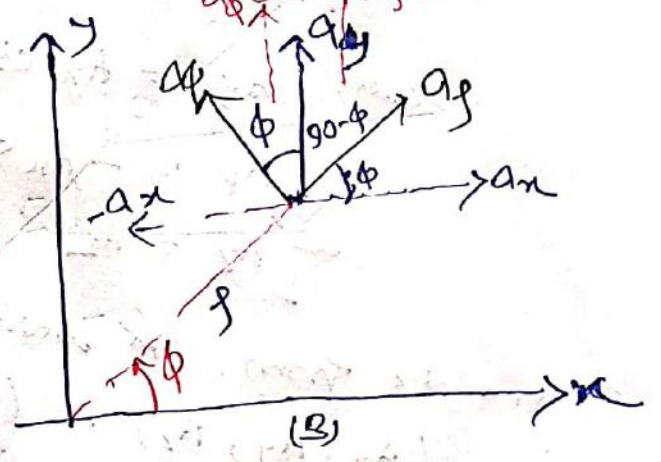 y
ay
aφ
aρ
φ
90-φ
φ
-ax
ax
ρ
φ
x
(B)